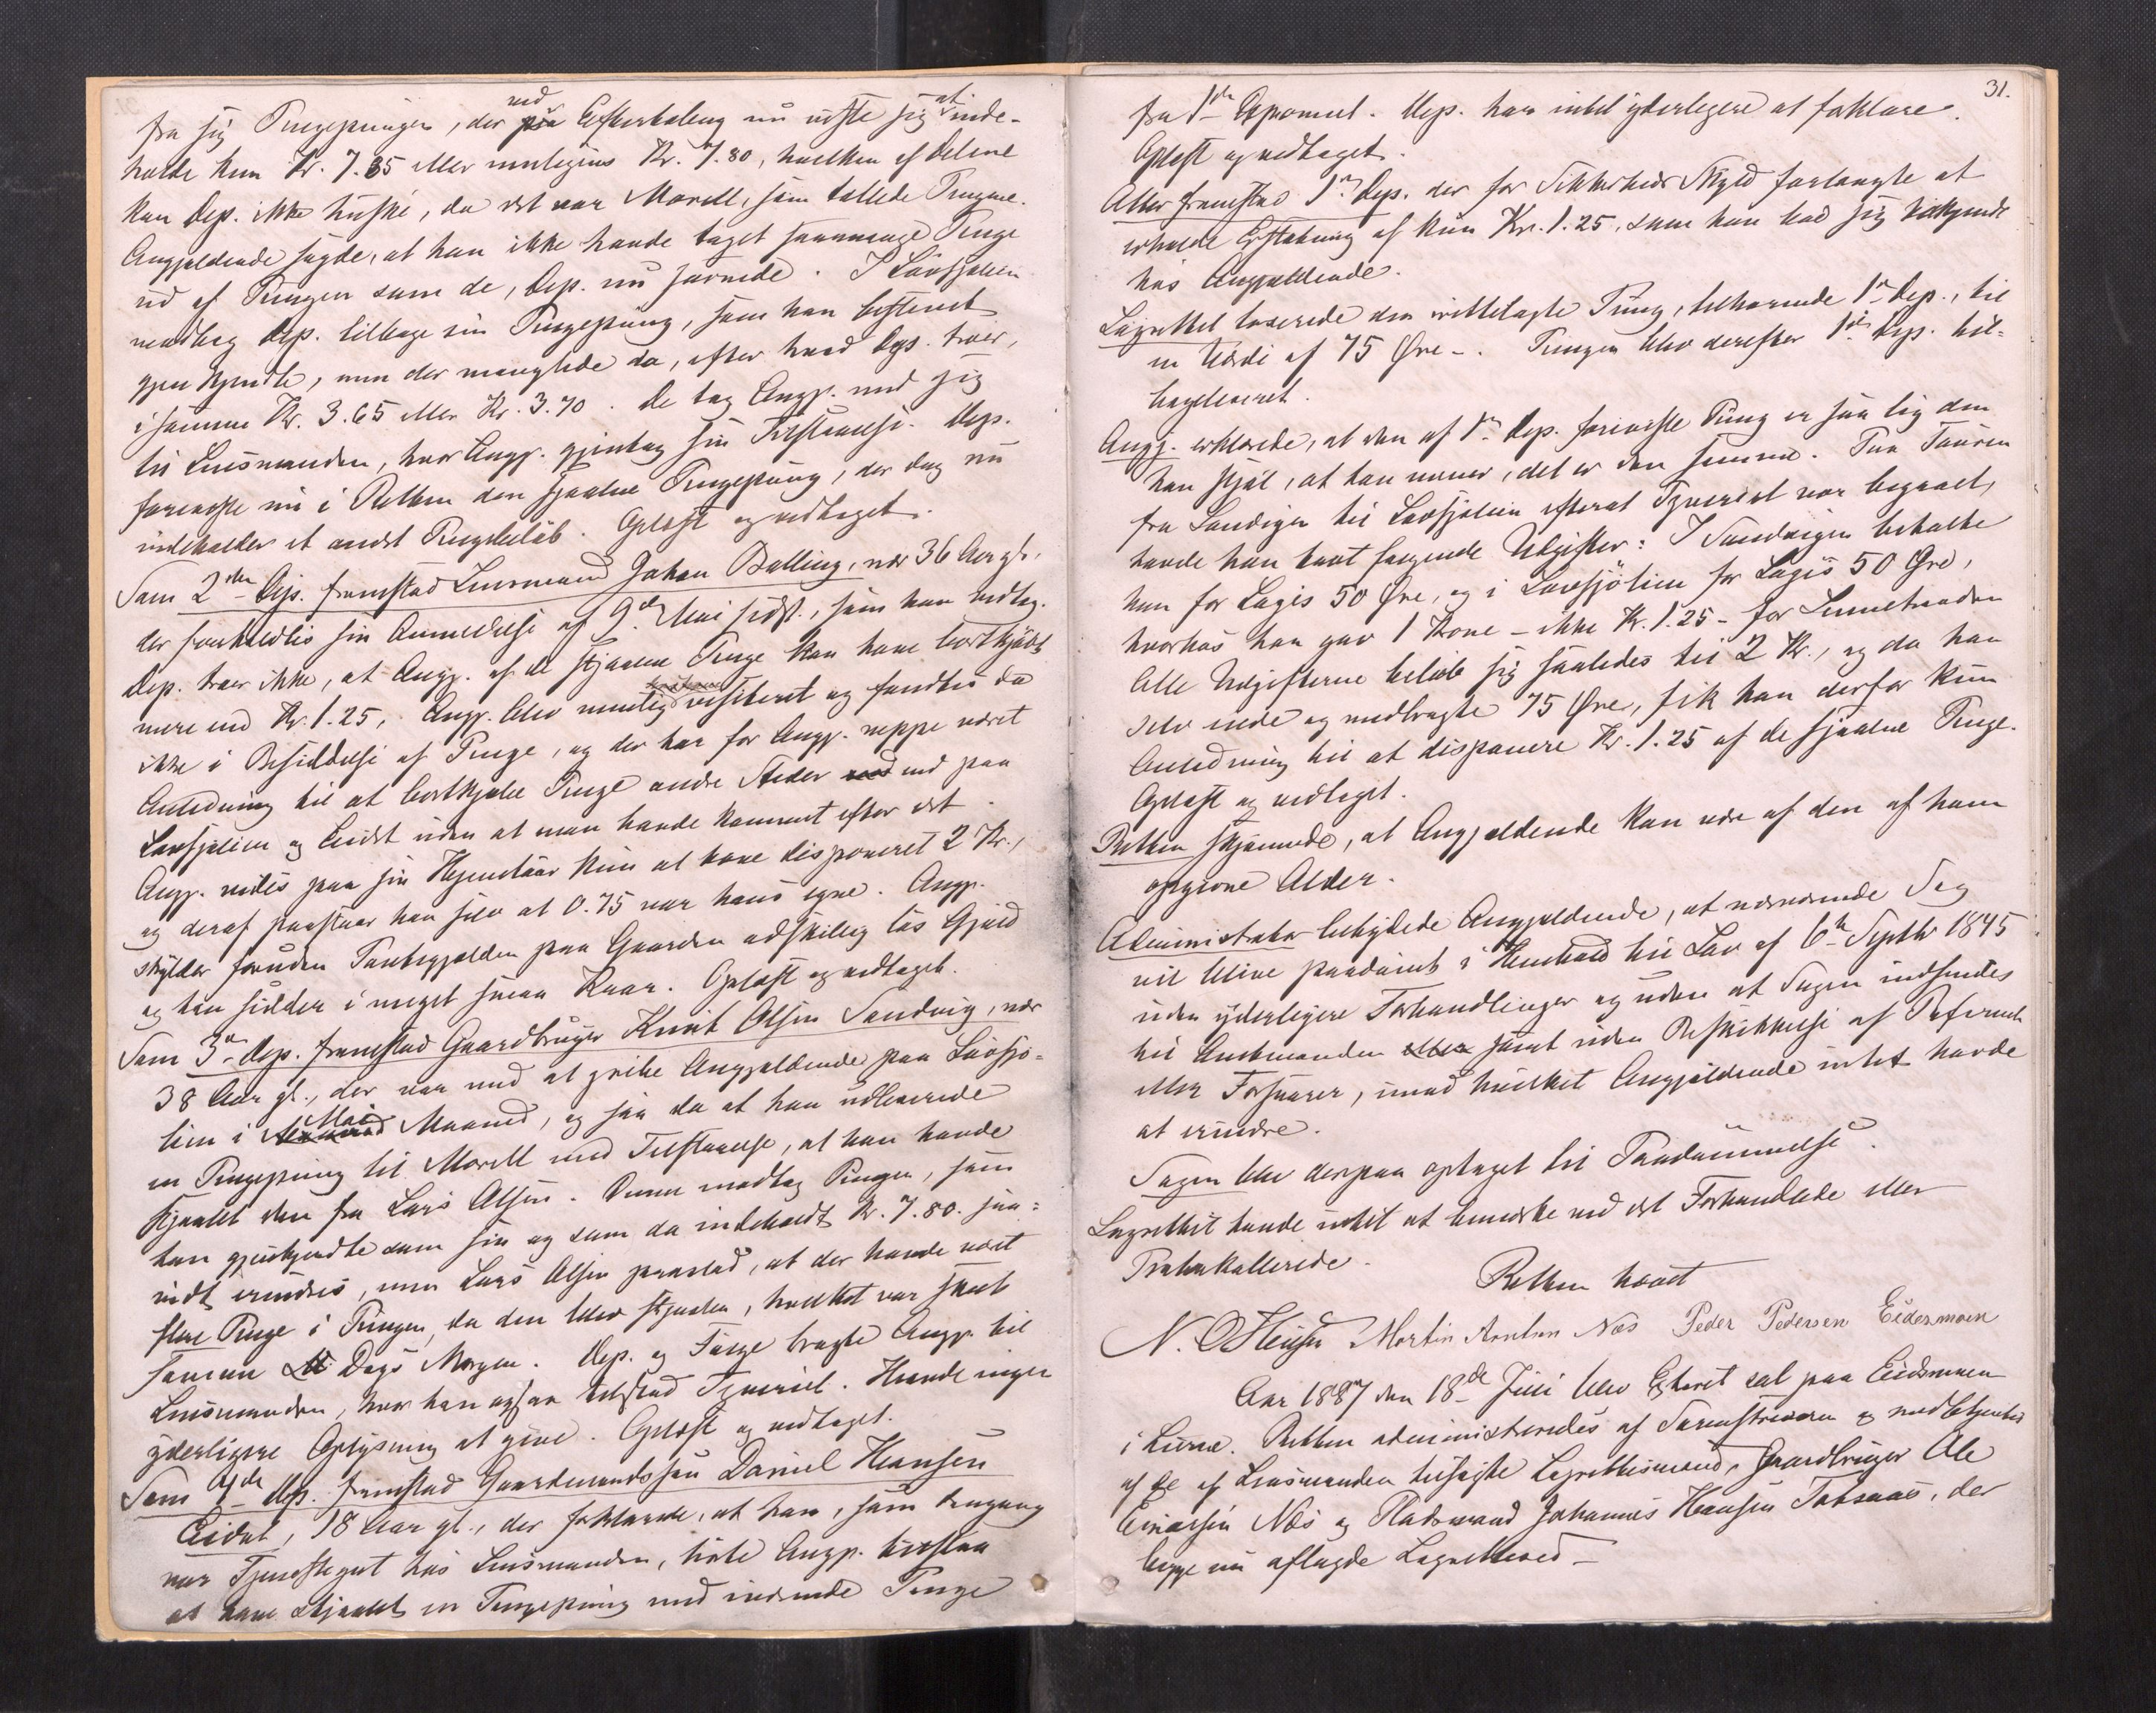 fra sig Pengepungen, der ved Eftertælling nu viste sig at inde-
holde kun Kr. 7.85 eller muligens Kr. 7.80, hvilken af Delene
kan Dep. ikke huske, da det var Morell, som tællede Pengene.
Angjældende sagde, at han ikke havde taget saamange Penge
ud af Pungen som de, Dep. nu savnede. I Lövsjølien
modtog Dep. tilbage sin Pengepung, som han bestemt
gjenkjendte, men der manglede da, efter hvad Dep. troer,
i samme Kr. 3.65 eller Kr. 3.70. De tog Angj. med sig
til Lensmanden, hvor Angj. gjentog sin Tilstaaelse. Dep.
foreviste nu i Retten den stjaalne Pengepung, der dog nu
indeholder et andet Pengebeløb. Oplæst og vedtaget.
Som 2den Dep. fremstod Lensmand Johan Balling, nær 36 Aar gl.
der foreholdtes sin Anmeldelse af 9de Mai sidstl., som han vedtog.
Dep. troer ikke, at Angj. af de stjaalne Penge kan have bortkjøbt
mere end Kr. 1.25, Angj. blev nemlig visiteret og fandtes da
ikke i Besiddelse af Penge, og der har for Angj. neppe været
Anledning til at bortkjøbe Penge andre Steder end paa
Løvsjølien og Eidet uden at man havde kommet efter det.
Angj. vides paa sin Hjemtour kun at have disponeret 2 Kr.,
og deraf paastaar han selv at 0.75 var hans egne. Angj.
skylder foruden Pantegjælden paa Gaarden adskillig løs Gjæld
og han sidder i meget smaa Kaar. Oplæst og vedtaget.
Som 3die Dep. fremstod Gaardbruger Knut Olsen Sandvig, nær
38 Aar gl., der var med at gribe Angjældende paa Løvsjø-
lien i Mai Maaned, og saa da at han udleverede
en Pengepung til Morell med Tilstaaelse, at han havde
stjaalet den fra Lars Olsen. Denne modtog Pungen, som
han gjenkjendte som sin og som da indeholdt Kr. 7.80. saa-
vidt erindres, men Lars Olsen paastod, at der havde været
flere Penge i Pungen, da den blev stjaalen, hvilket var skeet
samme Dags Morgen. Dep. og Følge bragte Angj. til
Lensmanden, hvor han ogsaa tilstod Tyveriet. Havde ingen
yderligere Oplysning at give. Oplæst og vedtaget.
Som 4de Dep. fremstod Gaardmandssøn Daniel Hansen
Eidet, 18 Aar gl., der forklarede, at han, som dengang
var Tjenestegut hos Lensmanden, hørte Angj. tilstaa
at have stjaalet en Pengepung med iværende Penge
31.
fra 1ste Deponent. Dep. har intet yderligere at forklare.
Oplæst og vedtaget.
Atter fremstod 1ste Dep. der for Sikkerheds Skyld forlangte at
erholde Erstatning af kun Kr. 1.25, som han bad sig tilkjendt
hos Angjældende.
Lagrettet taxerede den irettelagte Pung, tilhørende 1ste Dep., til
en Værdi af 75 Øre. Pungen blev derefter 1ste Dep. til-
bageleveret.
Angj. erklærede, at den af 1ste Dep. foreviste Pung er saa lig den
han stjal, at han mener, det er den samme. Paa Touren
fra Sandvigen til Løvsjølien efterat Tyveriet var begaaet,
havde han havt følgende Udgifter: I Sandvigen betalte
han for Logis 50 Øre, og i Løvsjølien for Logis 50 Øre,
hvorhos han gav 1 Krone - ikke Kr. 1.25 - for
Alle Udgifterne beløb sig saaledes til 2 Kr., og da han
selv eiede og medbragte 75 Øre, fik han derfor kun
Anledning til at disponere Kr. 1.25 af de stjaalne Penge.
Oplæst og vedtaget.
Retten skjønnede, at Angjældende kan være af den af ham
opgivne Alder.
Administrator betydede Angjældende, at nærværende Sag
vil blive paadømt i Henhold til Lov af 6te Septbr 1845
uden yderligere Forhandlinger og uden at Sagen indsendes
til Amtmanden samt uden Beskikkelse af Defensor
eller Forsvarer, imod hvilket Angjældende intet havde
at erindre.
Sagen blev derpaa optaget til Paadømmelse.
Lagrettet havde intet at bemærke ved det Forhandlede eller
Protokollerede.
Retten hævet
Martin Anton Næs Peder Pedersen Eidesmoen
Aar 1887 den 18de Juli blev Extraret sat paa Eidsmoen
i Lierne. Retten administreredes af Sorenskriveren og medbetjentes
af de af Lensmanden tilsagte Lagrettesmænd, Gaardbruger Ole
Næs og Pladsmand Johannes Hansen Tobsaas, der
begge nu aflagde Lagretteed -